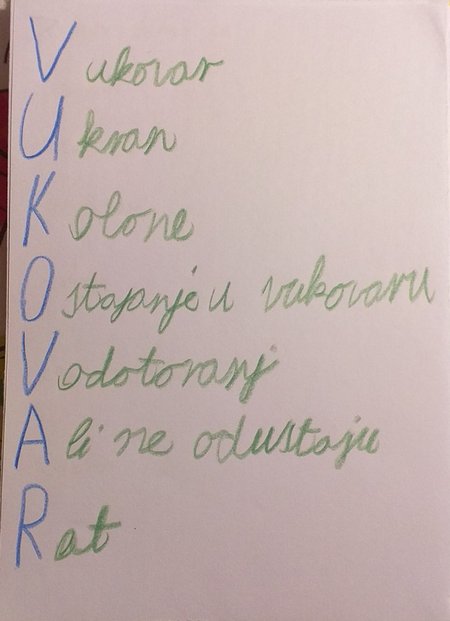 Vukovar
Ukran
Kolone
Ostajanje u vukovaru
Vodotoranj
Ali ne odustaju
Rat